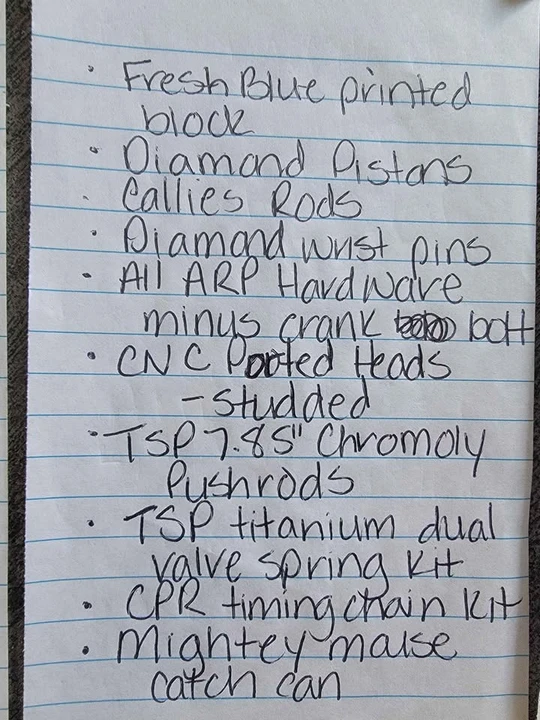 • Fresh Blue printed
block
• Diamond Pistons
• Callies Rods
• Diamond wrist pins
• All ARP Hardware
minus crank bolt
• CNC Ported Heads
- studded
• TSP 7.85" Chromoly
Pushrods
• TSP titanium dual
valve spring kit
• CPR timing chain kit
• Mightey mouse
catch can